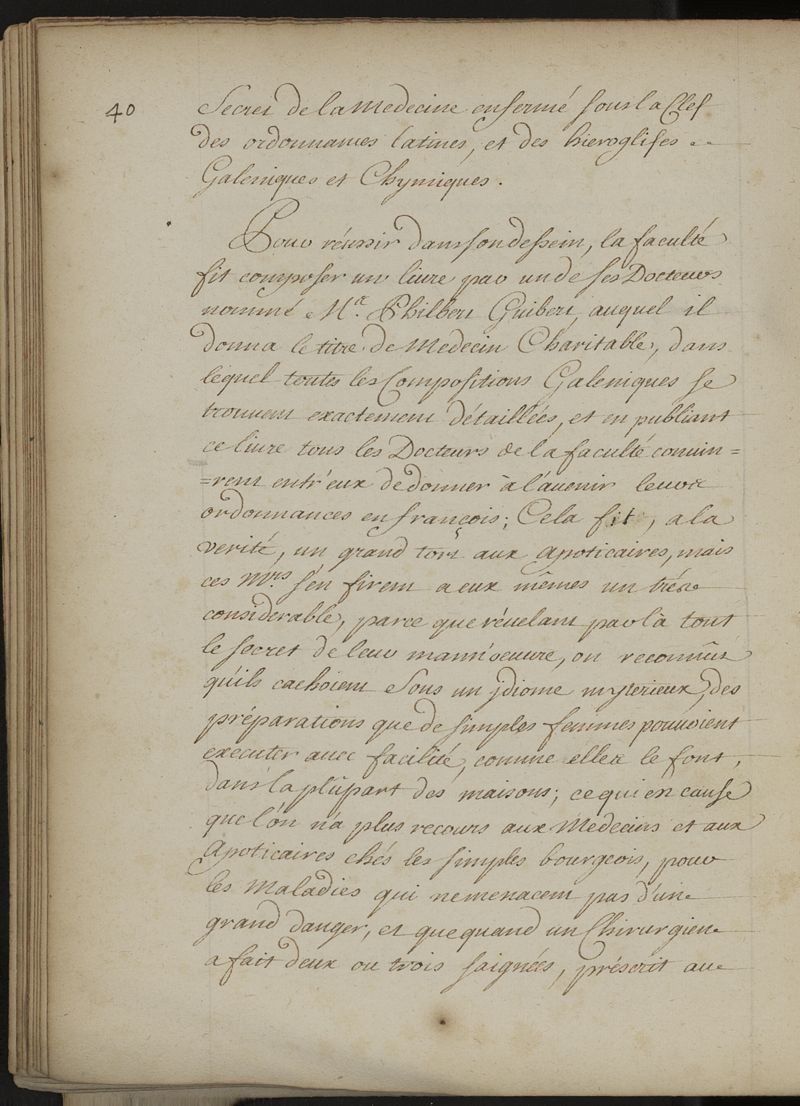 40
Secret de la Medecine enfermé sous la Clef
des ordonnances latines, et des hieroglifes
Galeniques et Chymiques.
Pour réussir dans son dessein, la faculté
fit composer un livre par un de ses Docteurs
nommé Mr. Philbert Guibert, auquel il
donna le titre de Medecin Charitable, dans
lequel toutes les Compositions Galeniques se
trouvent exactement détaillées, et en publiant
ce livre tous les Docteurs de la faculté convin=
=rent entr'eux de donner à l'avenir leurs
ordonnances en françois; Cela fit, a la
verité, un grand tort aux Apoticaires, mais
ces Mrs. s'en firent a eux mêmes un trés
considerable, parce que révelant par là tout
le secret de leur mann'œuvre, on reconnût
qu'ils cachoient sous un jdiome mysterieux, des
préparations que de simples femmes pouvoient
executer avec facilité, comme elles le font,
dans la plûpart des maisons; ce qui est cause
que l'on n'a plus recours aux Medecins et aux
Apoticaires chés les simples bourgeois, pour
les Maladies qui ne menacent pas d'un
grand danger, et que quand un Chirurgien
a fait deux ou trois saignées, préscrit au